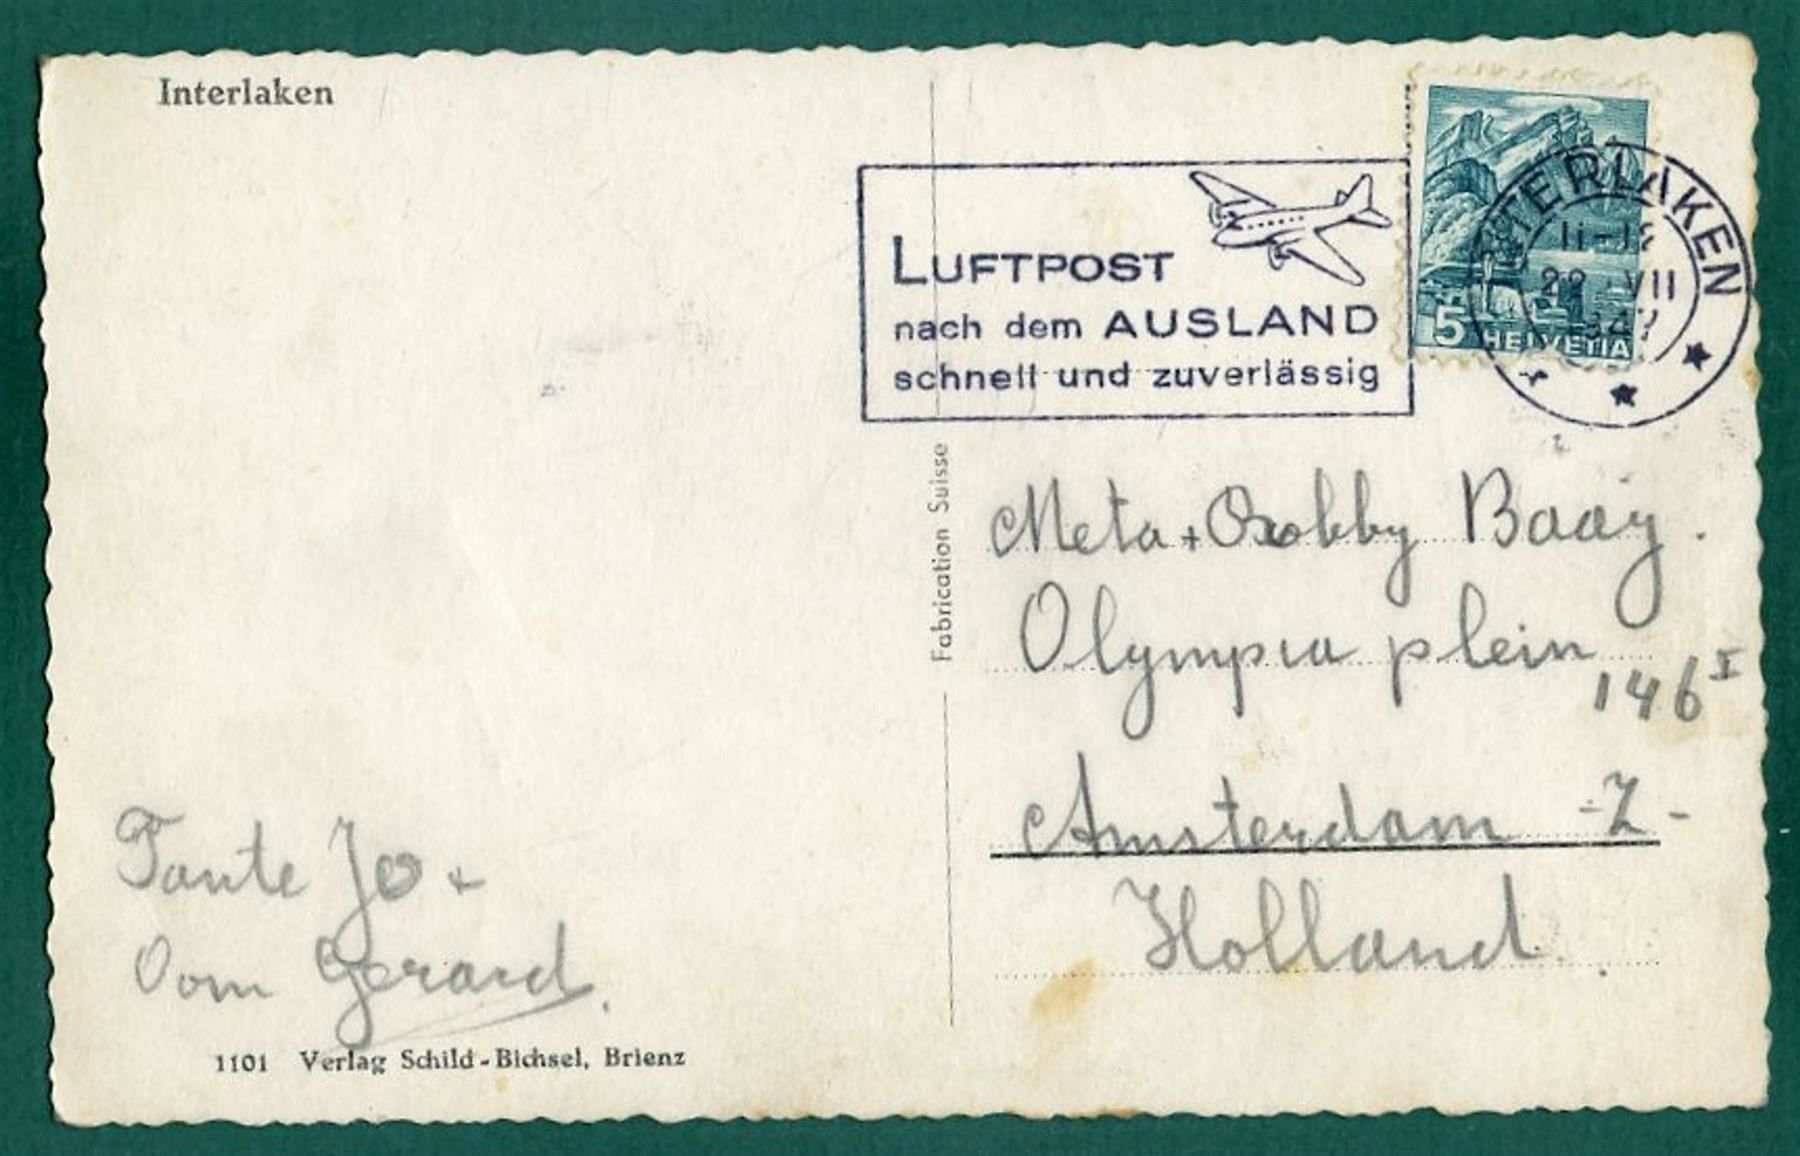 Interlaken
LUFTPOST
nach dem AUSLAND
schnell und zuverlässig
INTERLAKEN
VII
5 HELVETIA
Fabrication Suisse
Meta + Bobby Baay.
Olympia plein
146 I
Amsterdam -Z-
Holland.
Tante Jo +
Oom Gerard.
1101 Verlag Schild-Bichsel, Brienz